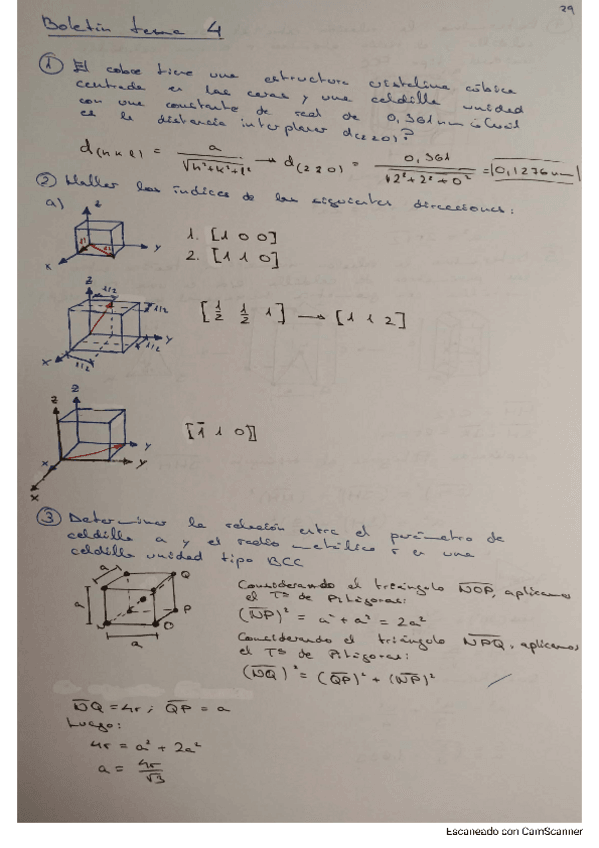 29
Boletín tema 4
① El cobre tiene una estructura cristalina cúbica
centrada en las caras y una celdilla unidad
con una constante de red de 0,361 nm ¿Cuál
es la distancia interplanar d(220)?
d(h k l) = a / √h²+k²+l² → d(2 2 0) = 0,361 / √2²+2²+0² = 0,1276 nm
② Hallar los índices de las siguientes direcciones:
a)
z
y
x
1. [1 0 0]
2. [1 1 0]
z
1/2
1/2
y
1/2
x
1/2
[1/2 1/2 1] → [1 1 2]
z
z
y
y
x
x
[1̄ 1 0]
③ Determinar la relación entre el parámetro de
celdilla a y el radio metálico r en una
celdilla unidad tipo BCC
a
a
a
Q
P
N
O
Considerando el triángulo NOP, aplicamos
el Tª de Pitágoras:
(NP)² = a² + a² = 2a²
Considerando el triángulo NPQ, aplicamos
el Tª de Pitágoras:
(NQ)² = (QP)² + (NP)²
NQ = 4r; QP = a
Luego:
4r = a² + 2a²
a = 4r / √3
Escaneado con CamScanner